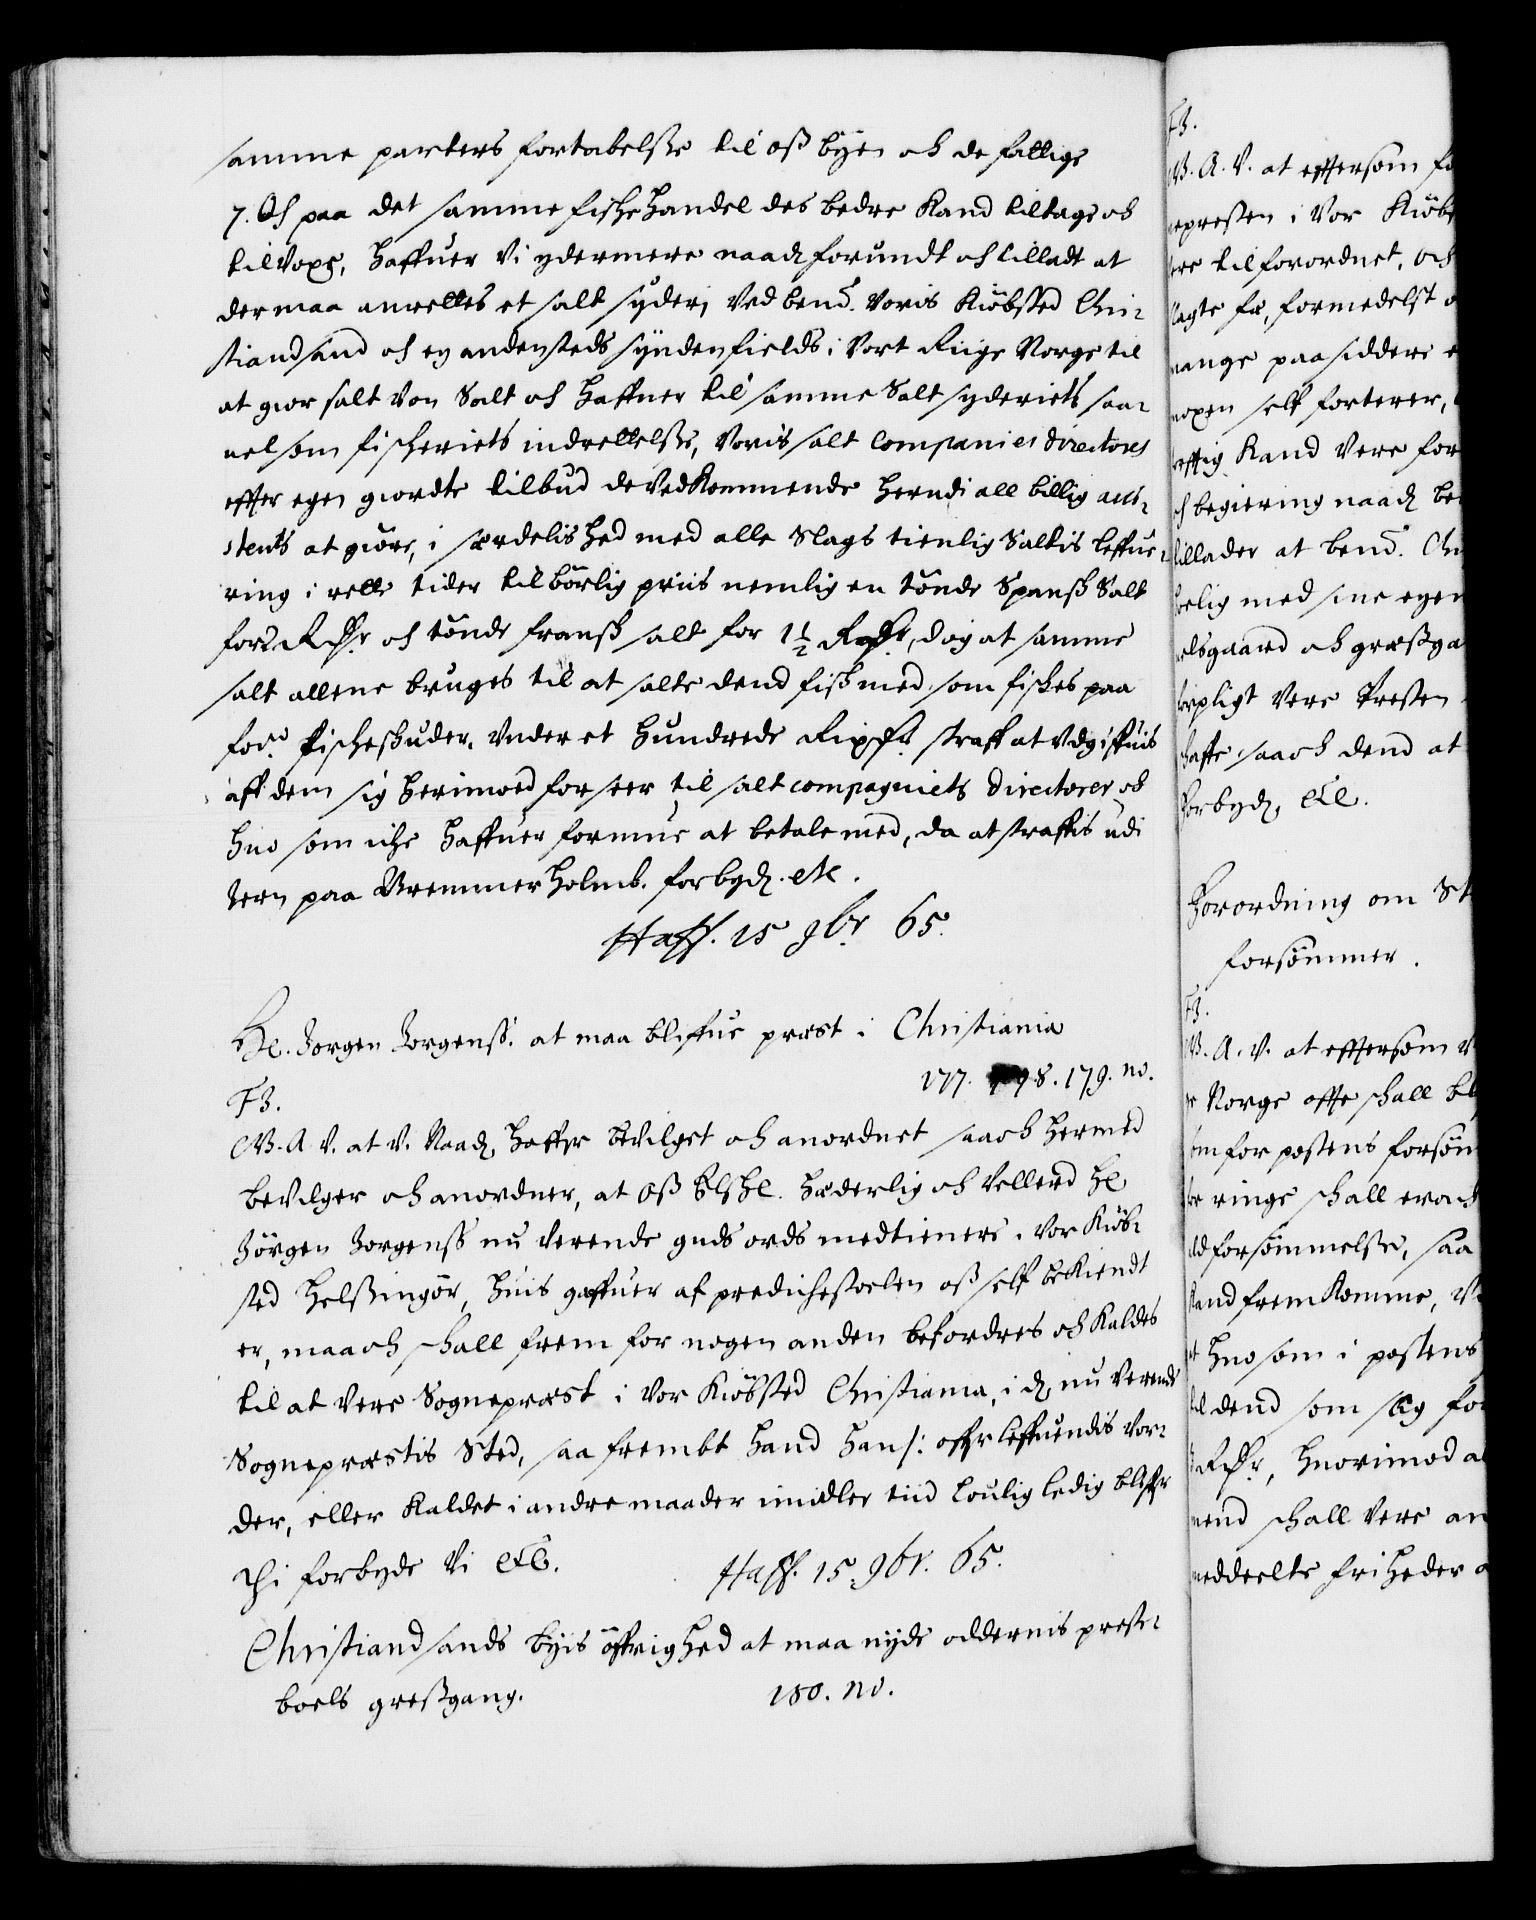 samme parters fortabelsse til oß byen och de fattige
7. Och paa det samme fiske Handel des bedre Kand tiltage och
tilvoxe, Haffuer Vi ydermere naadt forundt och tilladt at
der maa anrettes et salt syderj Ved bend. Voris Kiøbsted Chri-
stiandsand och ey andensteds Syndenfields i Vort Riige Norge til
at giør salt Von Salt och Haffuer til samme Salt syderiets saa-
uel som fischeriets indrettelsse, Voris salt Companies directores
effter egen giordte tilbud de Vedkommende Herudi all billig assi-
stents at giøre, i særdelis Hed med alle Slags tienlig Saltis leffue-
ring i rette tider til børlig priis nemlig en tønde Spansk Salt
for 2 Rdr och tønde fransk salt for 1½ Rdr, dog at samme
salt allene bruges til at salte dend fisk med som fiskes paa
for: fischeskuder. Vnder et Hundrede Rixdr straff at Vdgiffuis
aff dem sig Herimod forseer til salt compagniets directores och
huo som iche Haffuer formue at betale med, da at straffis udi
Jern paa Bremmer Holmb. forbyd. etc.
Haff. 15 9br. 65.
He. Jørgen Jorgenss. at maa bliffue præst i Christiania
177. 178. 179. no.
F3.
G.A.V. at V. Naad. Haffr bevilget och anordnet saa och Hermed
beVilger och anordner, at oß Elskl. Hæderlig och Vellerd He
Jørgen Jorgenss nu Verende guds ords medtienere i Vor Kiøb-
sted Helßingør, Huis gaffuer af predichestoelen oß self bekiendt
er, maa och skall frem for nogen anden befordres och Kaldes
til at Vere Sognepræst i Vor Kiøbsted Christiania, i d. nu Verende
Sognepræstis Sted, saa frembt Hand Ham /: offrleffuendis Vor-
der, eller Kaldet i andre maader imidler tiid loulig ledig bliffr
Thi forbyde Vi etc. Haff. 15. 9br. 65.
Christiandsands byis øffrighed at maa nyde oddernis preste-
boels greßgang. 180. no.
F3.
G.A.V. at efftersom fo
epresten i Vor Kiøbs
ere tilforordnet, och
lagte fæ, formedelst
mange paasiddere
noxen self forterer,
Kand Vere for
ch begiering naad be
tillader at bend. Chr
med sine egen
elsgaard och græßga
pligt Vere Presten
saa och dend at
forbyd. etc.
Forordning om St
forsømmer.
F3.
G.A.V. at effersom V
ge Norge offte skall bl
om for postens forsøm
ringe skall erach
ld forsømmelse, saa
stand frem Komme, V
at huo som i postens
til dend som slig for
Rdr, Huorimod a
mend skall Vere an
meddeelte friheder